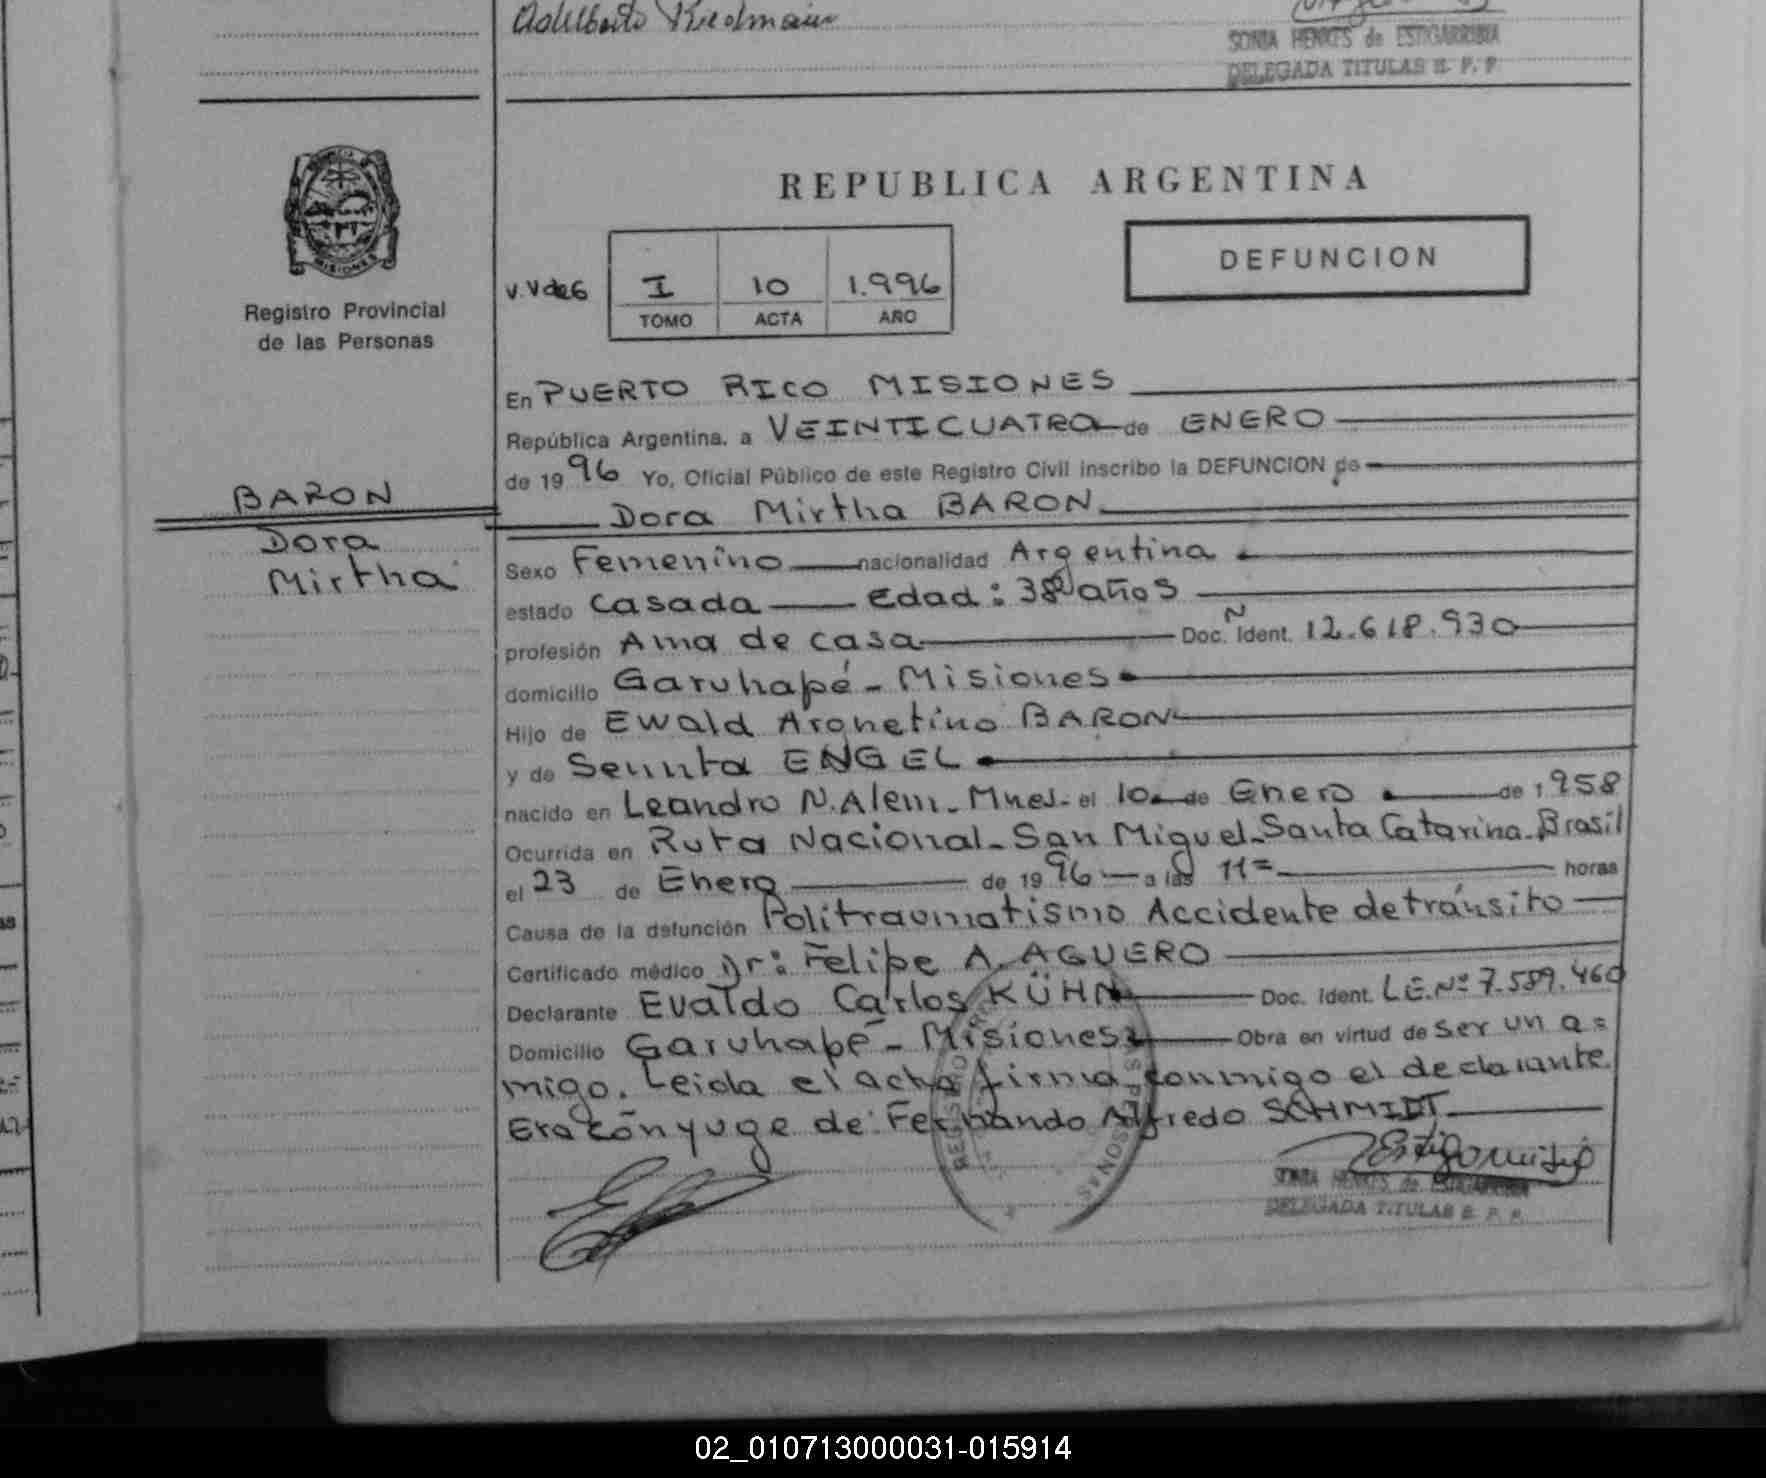 Adelberto Riedmaier
SONIA HENKES de ESTIGARRIBIA
DELEGADA TITULAR R. P. P.
PROVINCIA DE
MISIONES
Registro Provincial
de las Personas
REPUBLICA ARGENTINA
DEFUNCION
V.V de G I 10 1.996
TOMO ACTA AÑO
En PUERTO RICO MISIONES
República Argentina, a VEINTICUATRO de ENERO
de 1996 Yo, Oficial Público de este Registro Civil inscribo la DEFUNCION de
BARON
Dora Mirtha BARON
Dora
Mirtha
Sexo Femenino nacionalidad Argentina
estado casada Edad: 38 años
profesión Ama de casa Doc. N Ident. 12.618.930
domicilio Garuhapé - Misiones
Hijo de Ewald Argnetino BARON
y de Sennta ENGEL
nacido en Leandro N. Alem - Mnes - el 10 de Enero de 1958
Ocurrida en Ruta Nacional - San Miguel - Santa Catarina - Brasil
el 23 de Enero de 1996 a las 11= horas
Causa de la defunción Politraumatismo Accidente de tránsito
Certificado médico Dr: Felipe A. AGUERO
Declarante Evaldo Carlos KÜHN Doc. Ident. L.E. Nº 7.589.460
Domicilio Garuhapé - Misiones Obra en virtud de ser un a=
migo. Leida el acta firma conmigo el declarante.
Era cónyuge de: Fernando Alfredo SCHMIDT
REGISTRO PERSONAS
SONIA HENKES de ESTIGARRIBIA
DELEGADA TITULAR R. P. P.
02_010713000031-015914